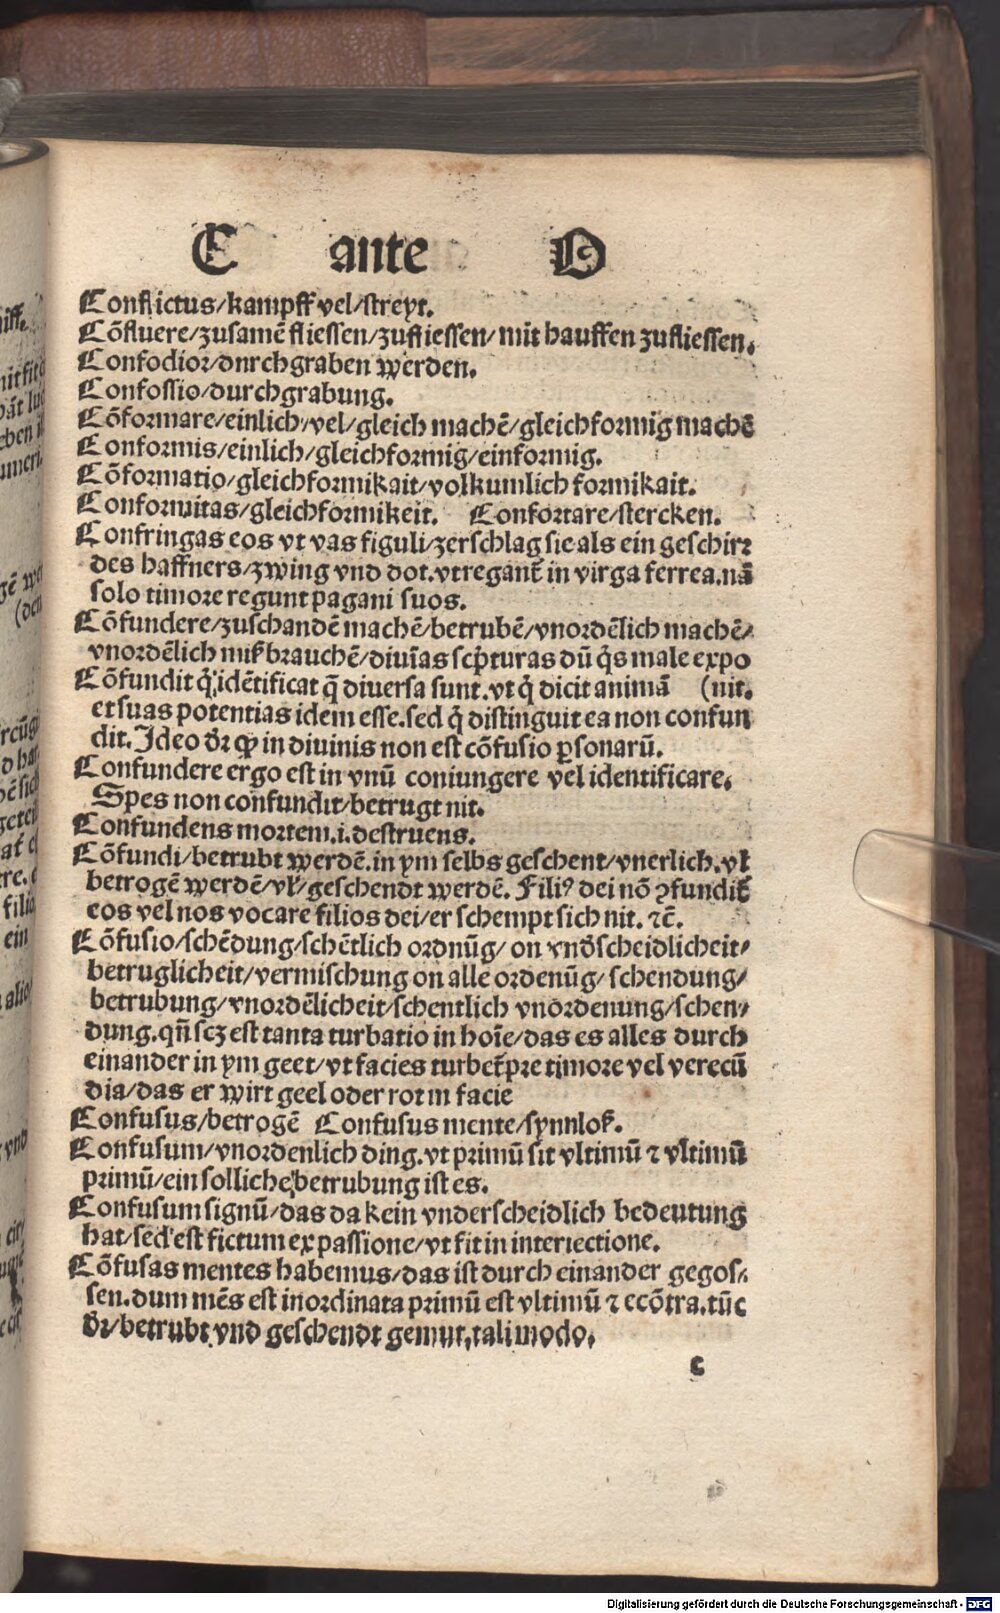 C ante O
Conflictus/kampff vel/streyt.
Cōfluere/zusamē fliessen/zufliessen/mit hauffen zufliessen.
Confodior/dnrchgraben werden.
Confossio/durchgrabung.
Cōformare/einlich/vel/gleich machē/gleichformig machē
Conformis/einlich/gleichformig/einformig.
Cōformatio/gleichformikait/volkumlich formikait.
Conformitas/gleichformikeit. Confortare/stercken.
Confringas eos vt vas figuli/zerschlag sie als ein geschirr
des haffners/zwing vnd dot.vt regant̄ in virga ferrea.nā
solo timore regunt pagani suos.
Cōfundere/zuschandē machē/betrubē/vnordēlich machē/
vnordēlich mißbrauchē/diuīas scpturas dū q̇s male expo
Cōfundit q̇ idētificat q̄ diuersa sunt.vt q̇ dicit animā (nit.
et suas potentias idem esse.sed q̇ distinguit ea non confun
dit. Ideo dr̄ ꝙ in diuinis non est cōfusio ꝑsonarū.
Confundere ergo est in vnū coniungere vel identificare.
Spes non confundit/betrugt nit.
Confundens mortem.i.destruens.
Cōfundi/betrubt werdē.in ym selbs geschent/vnerlich.vł
betrogē werdē/vł/geschendt werdē. Filiꝰ dei nō ꝯfundit̄
eos vel nos vocare filios dei/er schempt sich nit. ⁊c̄.
Cōfusio/schēdung/schētlich ordnūg/on vnd̄scheidlicheit/
betruglicheit/vermischung on alle ordenūg/schendung/
betrubung/vnordēlicheit/schentlich vnordenung/schen/
dung.qn̄ scz est tanta turbatio in hoīe/das es alles durch
einander in ym geet/vt facies turbet̄ pre timore vel verecū
dia/das er wirt geel oder rot in facie
Confusus/betrogē Confusus mente/synnloß.
Confusum/vnordenlich ding.vt primū sit vltimū ⁊ vltimū
primū/ein solliche betrubung ist es.
Confusum signū/das da kein vnderscheidlich bedeutung
hat/sed est fictum ex passione/vt fit in interiectione.
Cōfusas mentes habemus/das ist durch einander gegos/
sen.dum mēs est inordinata primū est vltimū ⁊ ecōtra.tūc
dr̄/betrubt vnd geschendt gemut,tali modo.
c
Digitalisierung gefördert durch die Deutsche Forschungsgemeinschaft - DFG